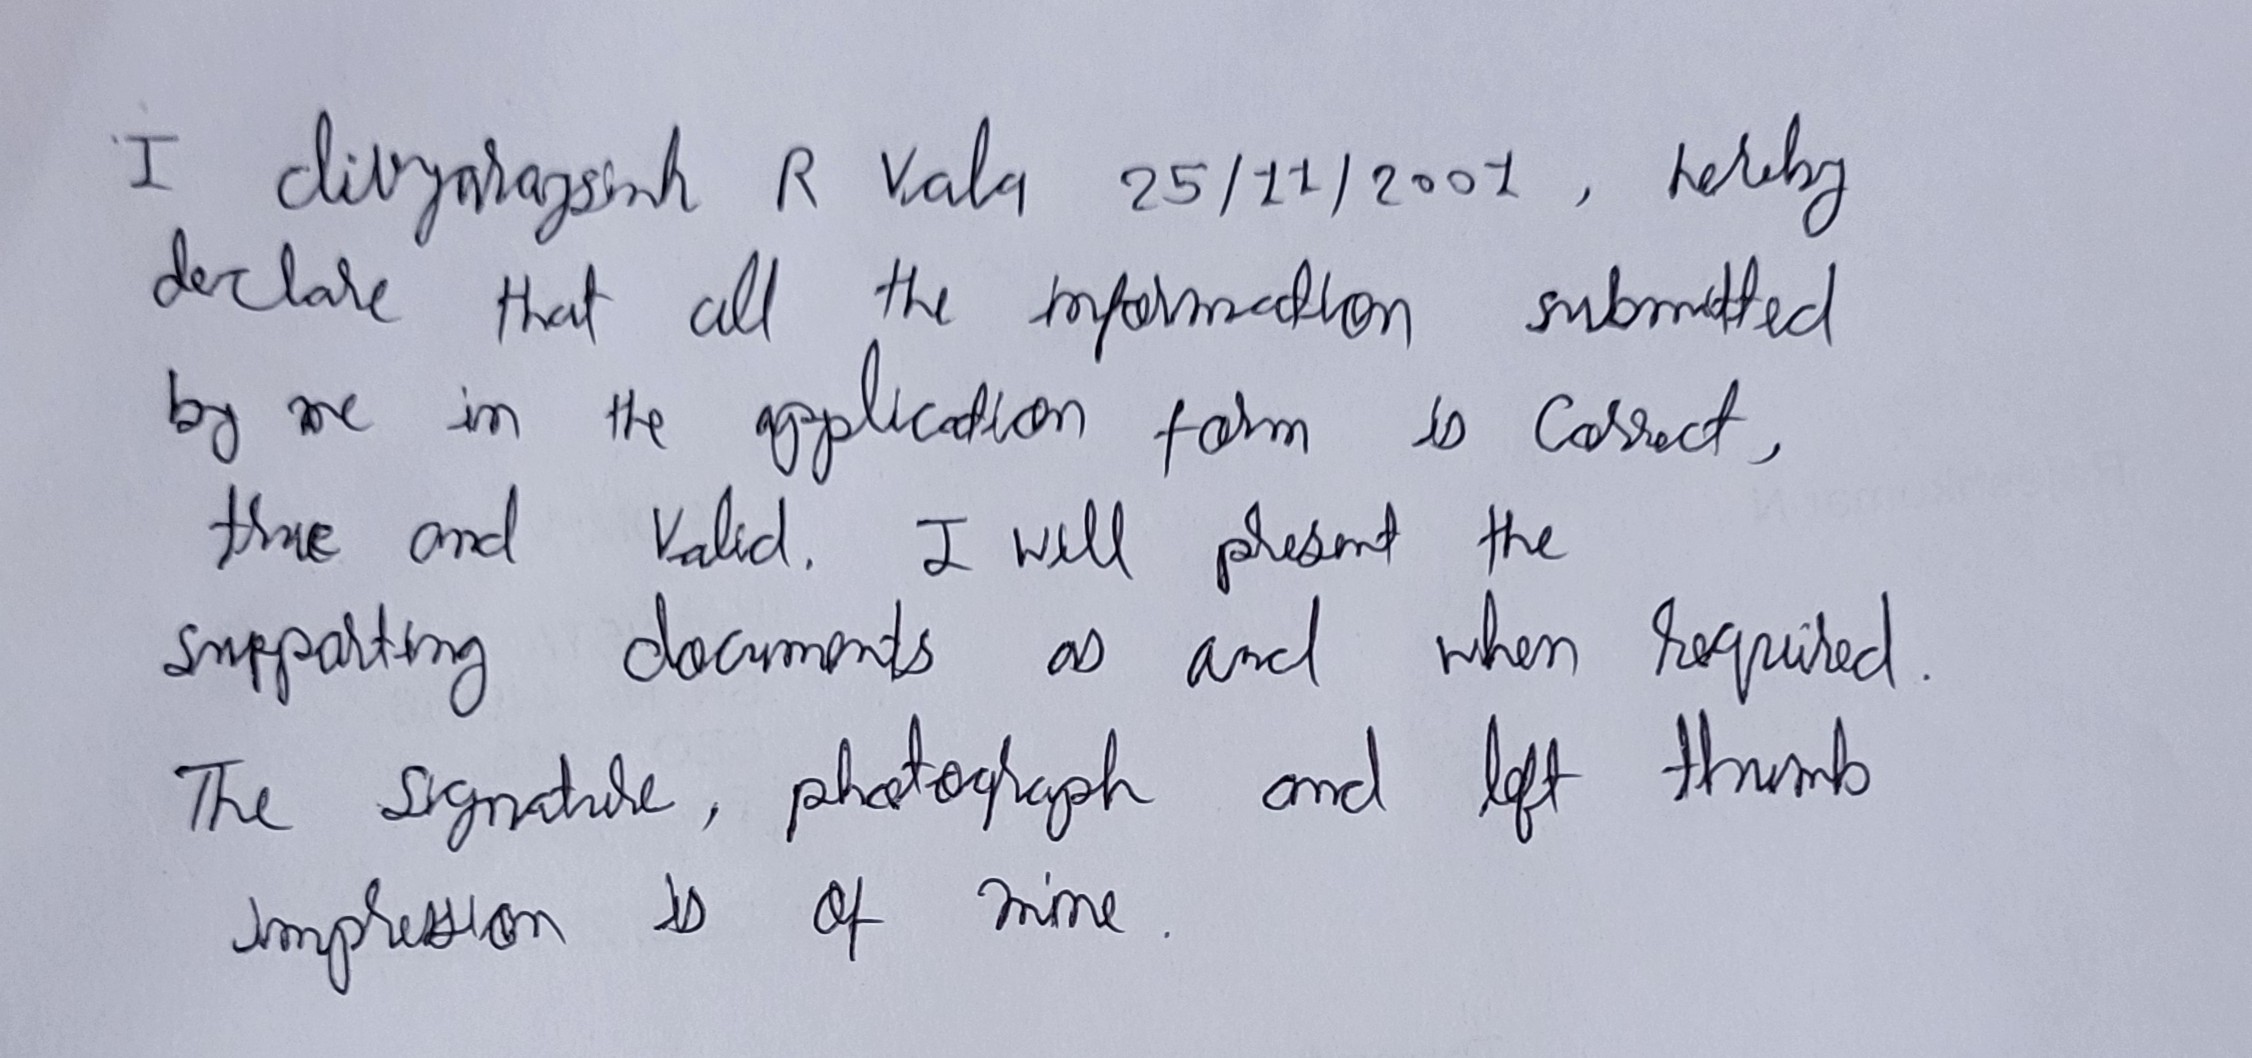 I divyarajsinh R Vala 25/11/2001, hereby
declare that all the information submitted
by me in the application form is Correct,
true and Valid. I will present the
supporting documents as and when required.
The signature, photograph and left thumb
impression is of mine.
Rajeshkumar N